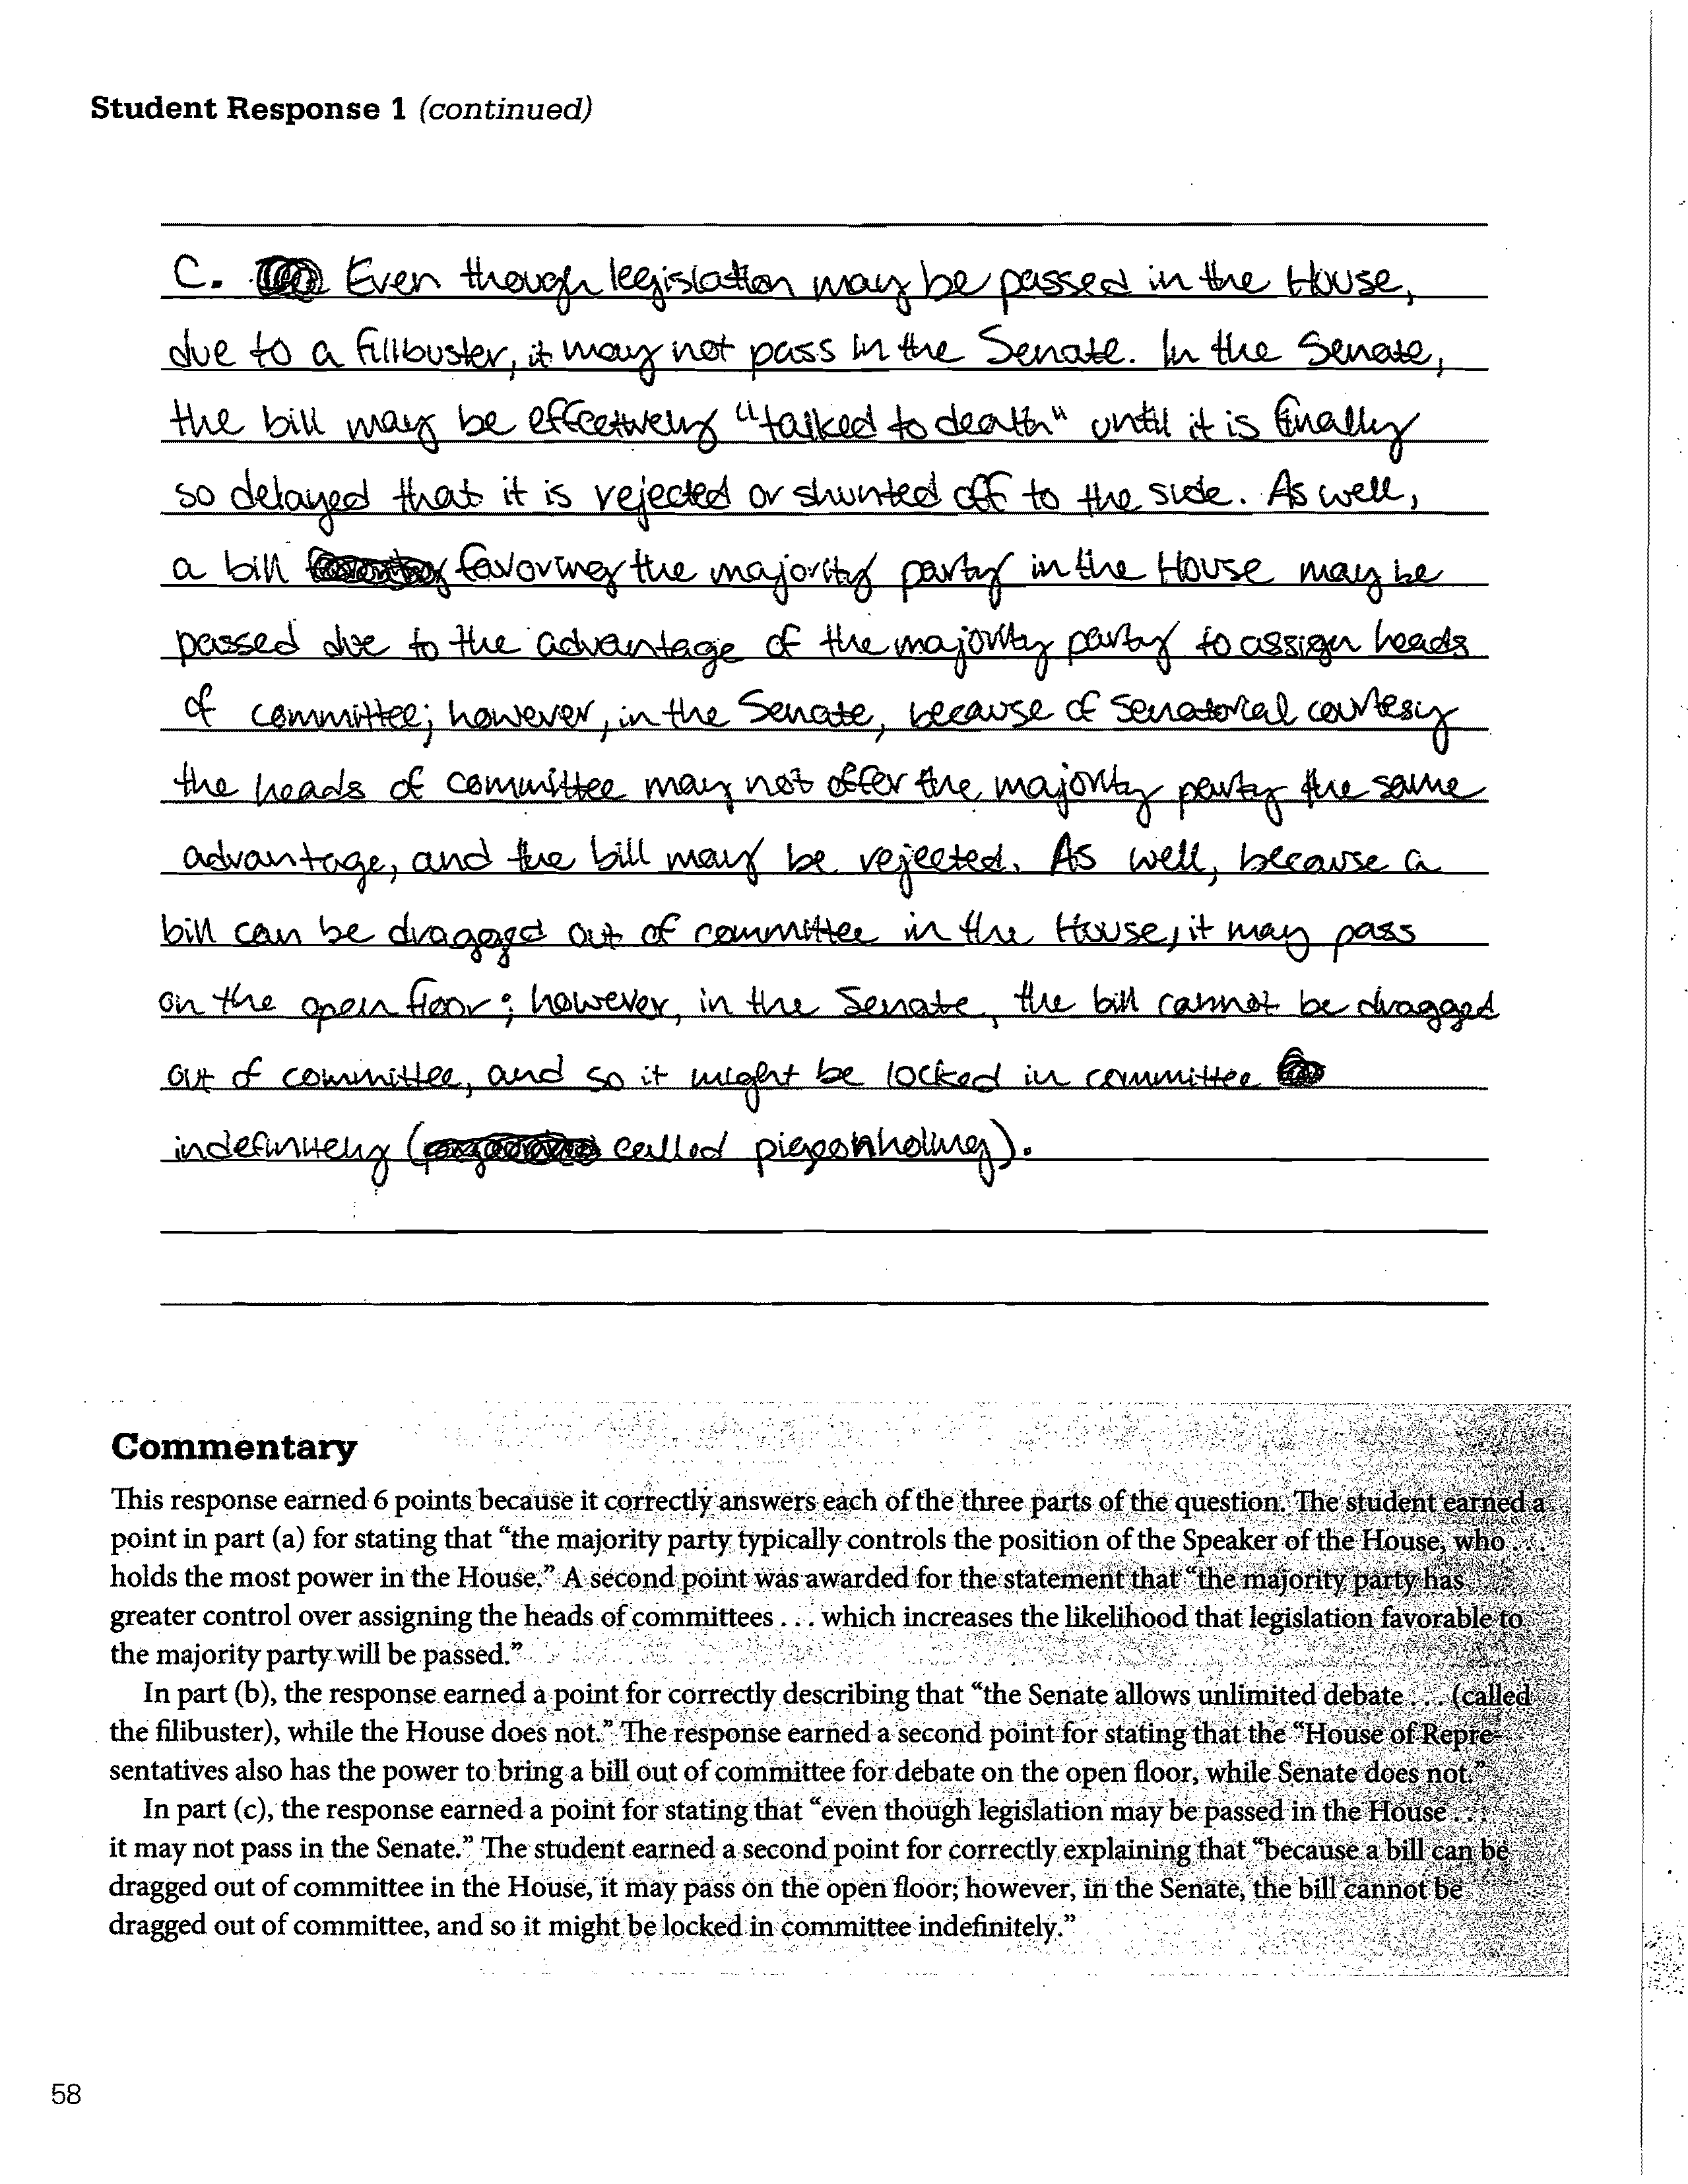 Student Response 1 (continued)
C. Even though legislation may be passed in the House,
due to a fillbuster, it may not pass in the Senate. In the Senate,
the bill may be effectively "talked to death" until it is finally
so delayed that it is rejected or shunted off to the side. As well,
a bill favoring the majority party in the House may be
passed due to the advantage of the majority party to assign heads
of committee; however, in the Senate, because of senatorial courtesy
the heads of committee may not offer the majority party the same
advantage, and the bill may be rejected. As well, because a
bill can be dragged out of committee in the House, it may pass
on the open floor; however, in the Senate, the bill cannot be dragged
out of committee, and so it might be locked in committee
indefinitely (called pigeonholing).
Commentary
This response earned 6 points because it correctly answers each of the three parts of the question. The student earned a
point in part (a) for stating that “the majority party typically controls the position of the Speaker of the House, who . . .
holds the most power in the House.” A second point was awarded for the statement that “the majority party has
greater control over assigning the heads of committees . . . which increases the likelihood that legislation favorable to
the majority party will be passed.”
In part (b), the response earned a point for correctly describing that “the Senate allows unlimited debate . . . (called
the filibuster), while the House does not.” The response earned a second point for stating that the “House of Repre-
sentatives also has the power to bring a bill out of committee for debate on the open floor, while Senate does not.”
In part (c), the response earned a point for stating that “even though legislation may be passed in the House . . .
it may not pass in the Senate.” The student earned a second point for correctly explaining that “because a bill can be
dragged out of committee in the House, it may pass on the open floor; however, in the Senate, the bill cannot be
dragged out of committee, and so it might be locked in committee indefinitely.”
58